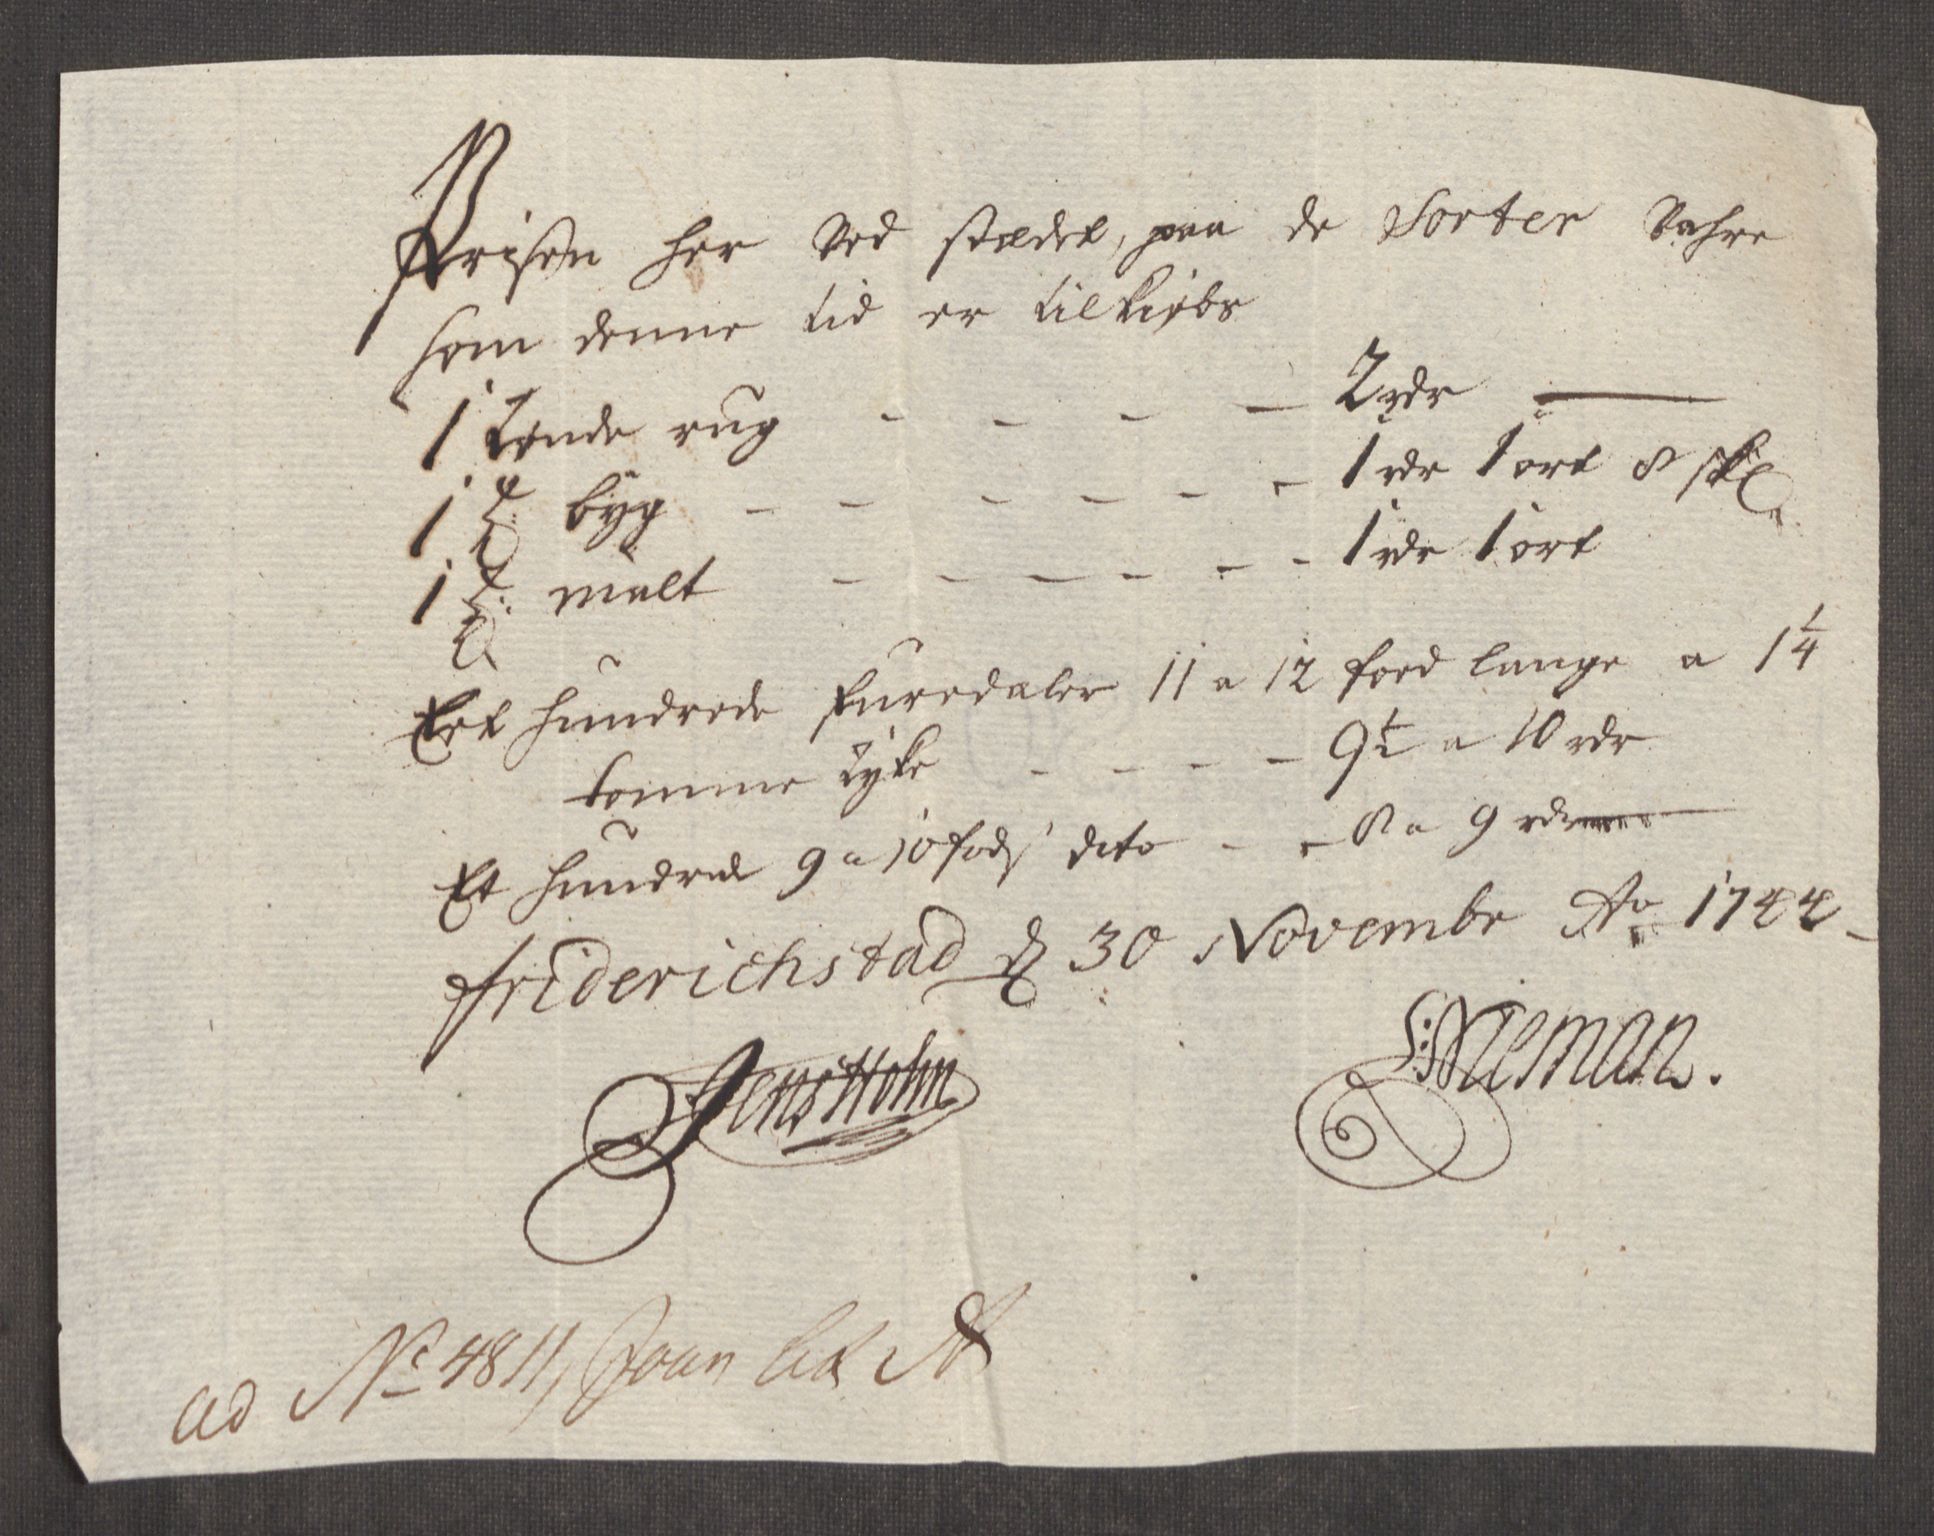 Prisen her ved stædet, paa de Sorter Vahre
som denne tid er til kiøbs
1 Tønde rug - - - - 2 rdr —
1 T: byg - - - - - - 1 rdr 1 ort 8 sk
1 T: malt - - - - - - 1 rdr 1 ort
Eet hundrede furedæler 11 a 12 foed lange a 1 1/4
tomme tyke - - - - 9 1/2 a 10 rdr
Et hundrede 9 a 10 fods dito - - 8 a 9 rdr
Friderichstad d 30 Novembr Ao 1744
Jens Holm
S: Nieman.
ad No 4811,